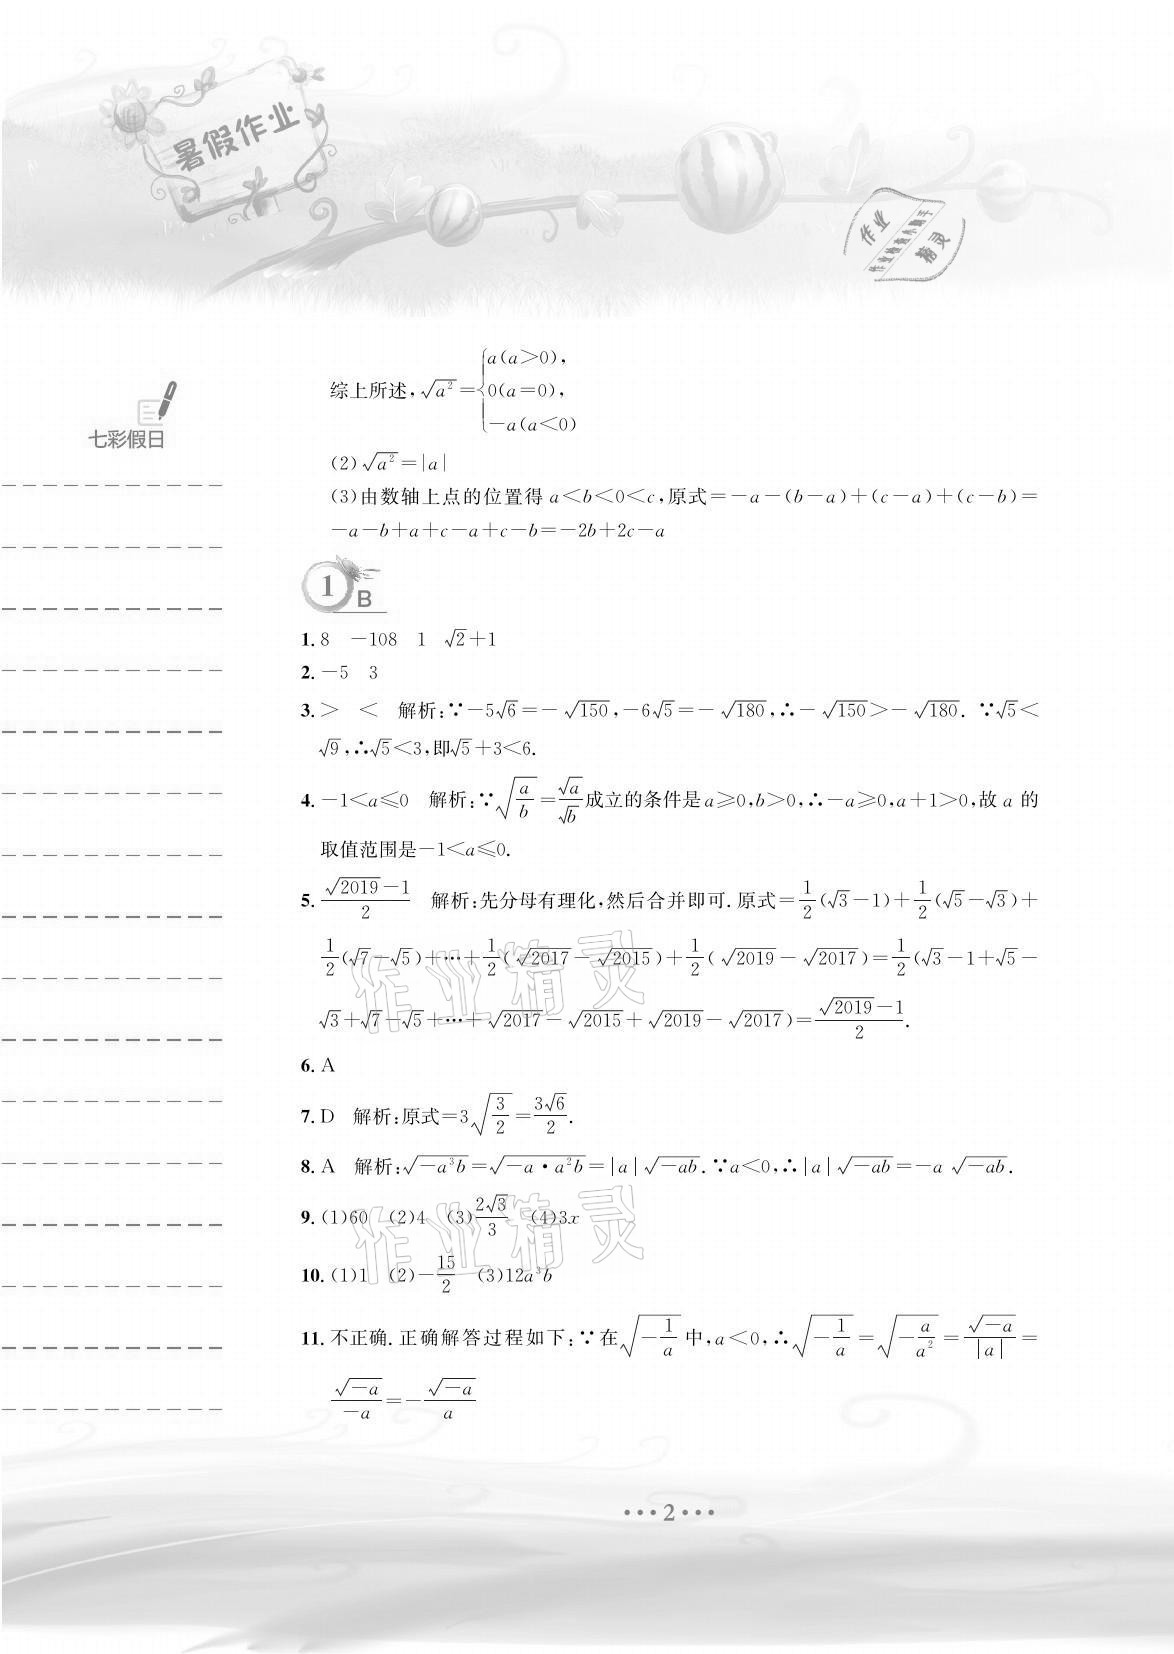 暑假作业
作业
作业检查小助手
精灵
综上所述,√a²={a(a>0),
0(a=0),
-a(a<0)
七彩假日
(2)√a²=|a|
(3)由数轴上点的位置得 a<b<0<c,原式=-a-(b-a)+(c-a)+(c-b)=
-a-b+a+c-a+c-b=-2b+2c-a
1 B
1. 8 -108 1 √2+1
2. -5 3
3. > < 解析:∵-5√6=-√150,-6√5=-√180,∴-√150>-√180. ∵√5<
√9,∴√5<3,即√5+3<6.
4. -1<a≤0 解析:∵√(a/b)=√a/√b成立的条件是a≥0,b>0,∴-a≥0,a+1>0,故 a 的
取值范围是-1<a≤0.
5. (√2019-1)/2 解析:先分母有理化,然后合并即可.原式=1/2(√3-1)+1/2(√5-√3)+
1/2(√7-√5)+…+1/2(√2017-√2015)+1/2(√2019-√2017)=1/2(√3-1+√5-
√3+√7-√5+…+√2017-√2015+√2019-√2017)=(√2019-1)/2.
6. A
7. D 解析:原式=3√(3/2)=3√6/2.
8. A 解析:√(-a³b)=√(-a·a²b)=|a|√(-ab).∵a<0,∴|a|√(-ab)=-a√(-ab).
9. (1)60 (2)4 (3)2√3/3 (4)3x
10. (1)1 (2)-15/2 (3)12a³b
11. 不正确.正确解答过程如下:∵在√(-1/a)中,a<0,∴√(-1/a)=√(-a/a²)=√(-a)/|a|=
√(-a)/-a=-√(-a)/a
作业精灵
作业精灵
···2···